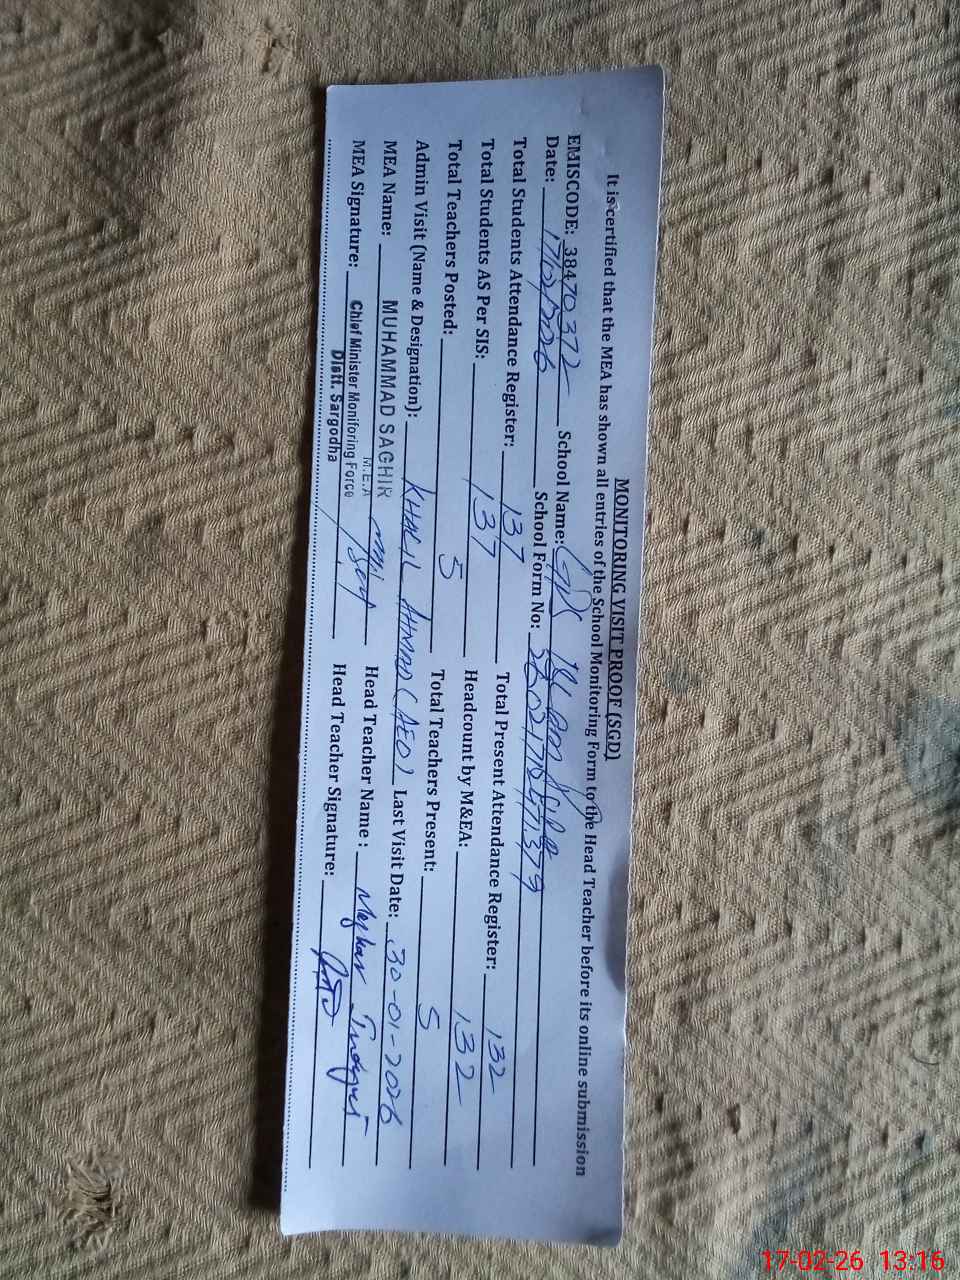 MONITORING VISIT PROOF (SGD)
It is certified that the MEA has shown all entries of the School Monitoring Form to the Head Teacher before its online submission
EMISCODE: 38470372 School Name: GPS
Date: 17/02/2026 School Form No:
Total Students Attendance Register: 137 Total Present Attendance Register: 132
Total Students AS Per SIS: 137 Headcount by M&EA: 132
Total Teachers Posted: 5 Total Teachers Present: 5
Admin Visit (Name & Designation): KHALIL AHMAD (AEO) Last Visit Date: 30-01-2026
MEA Name: MUHAMMAD SAGHIR Head Teacher Name :
M.E.A
MEA Signature: Chief Minister Monitoring Force Head Teacher Signature:
Distt. Sargodha
17-02-26 13:16